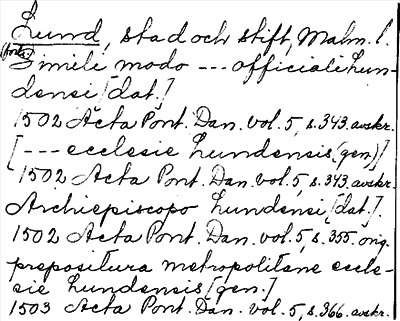 Lund, stad och stift, Malm. l.
(forts.)
Simili modo --- officiali lun-
densi [dat.]
1502 Acta Pont. Dan. vol. 5, s. 343. avskr.
[--- ecclesie lundensis (gen.)]
1502 Acta Pont. Dan. vol. 5, s. 343. avskr.
Archiepiscopo lundensi [dat.].
1502 Acta Pont. Dan. vol. 5, s. 355. orig.
prepositura metropolitane eccle-
sie lundensis [gen.]
1503 Acta Pont. Dan. vol. 5, s. 366. avskr.